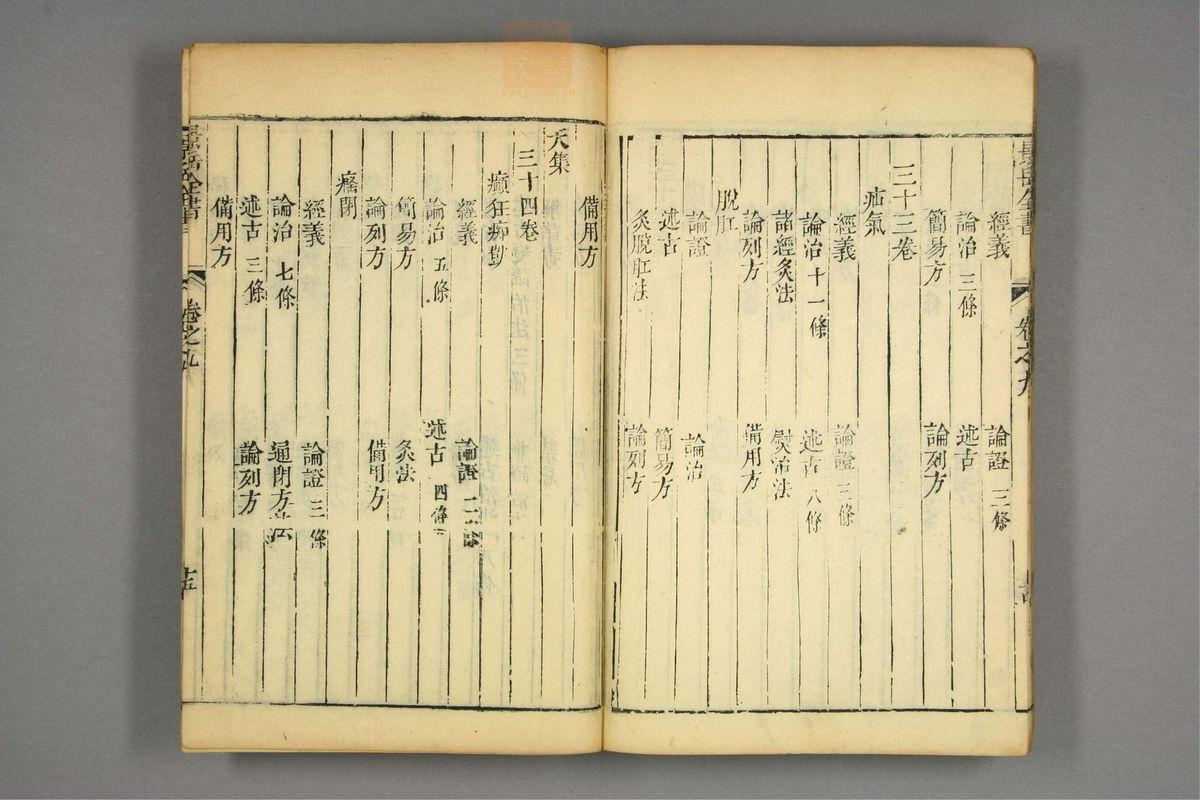 景岳全書
卷之九
經義
論證 三條
論治 三條
述古
簡易方
論列方
三十三卷
疝氣
經義
論證 三條
論治 十一條
述古 八條
諸經灸法
熨治法
論列方
備用方
脫肛
論證
論治
述古
簡易方
灸脫肛法
論列方
備用方
天集
三十四卷
癲狂痴獃
經義
論證 二條
論治 五條
述古 四條
簡易方
灸法
論列方
備用方
癃閉
經義
論證 三條
論治 七條
通閉方法
述古 三條
論列方
備用方
景岳全書
卷之九
十五